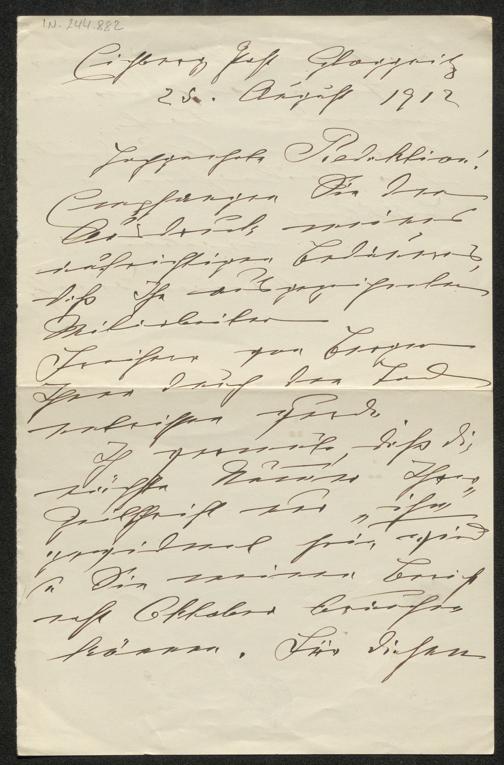 IN. 244.882
Eichberg Post Gloggnitz
25. August 1912
Hochgeehrte Redaktion!
Empfangen Sie den
Ausdruck meines
aufrichtigen Bedauerns,
daß Ihr ausgezeichneter
Mitarbeiter
Freiherr von Berger
Ihnen durch den Tod
entrissen wurde
Ich vermute, daß die
nächste Nummer Ihrer
Zeitschrift nur „ihm"
gewidmet sein wird
u Sie meinen
erst Oktober bringen
können. Für diesen